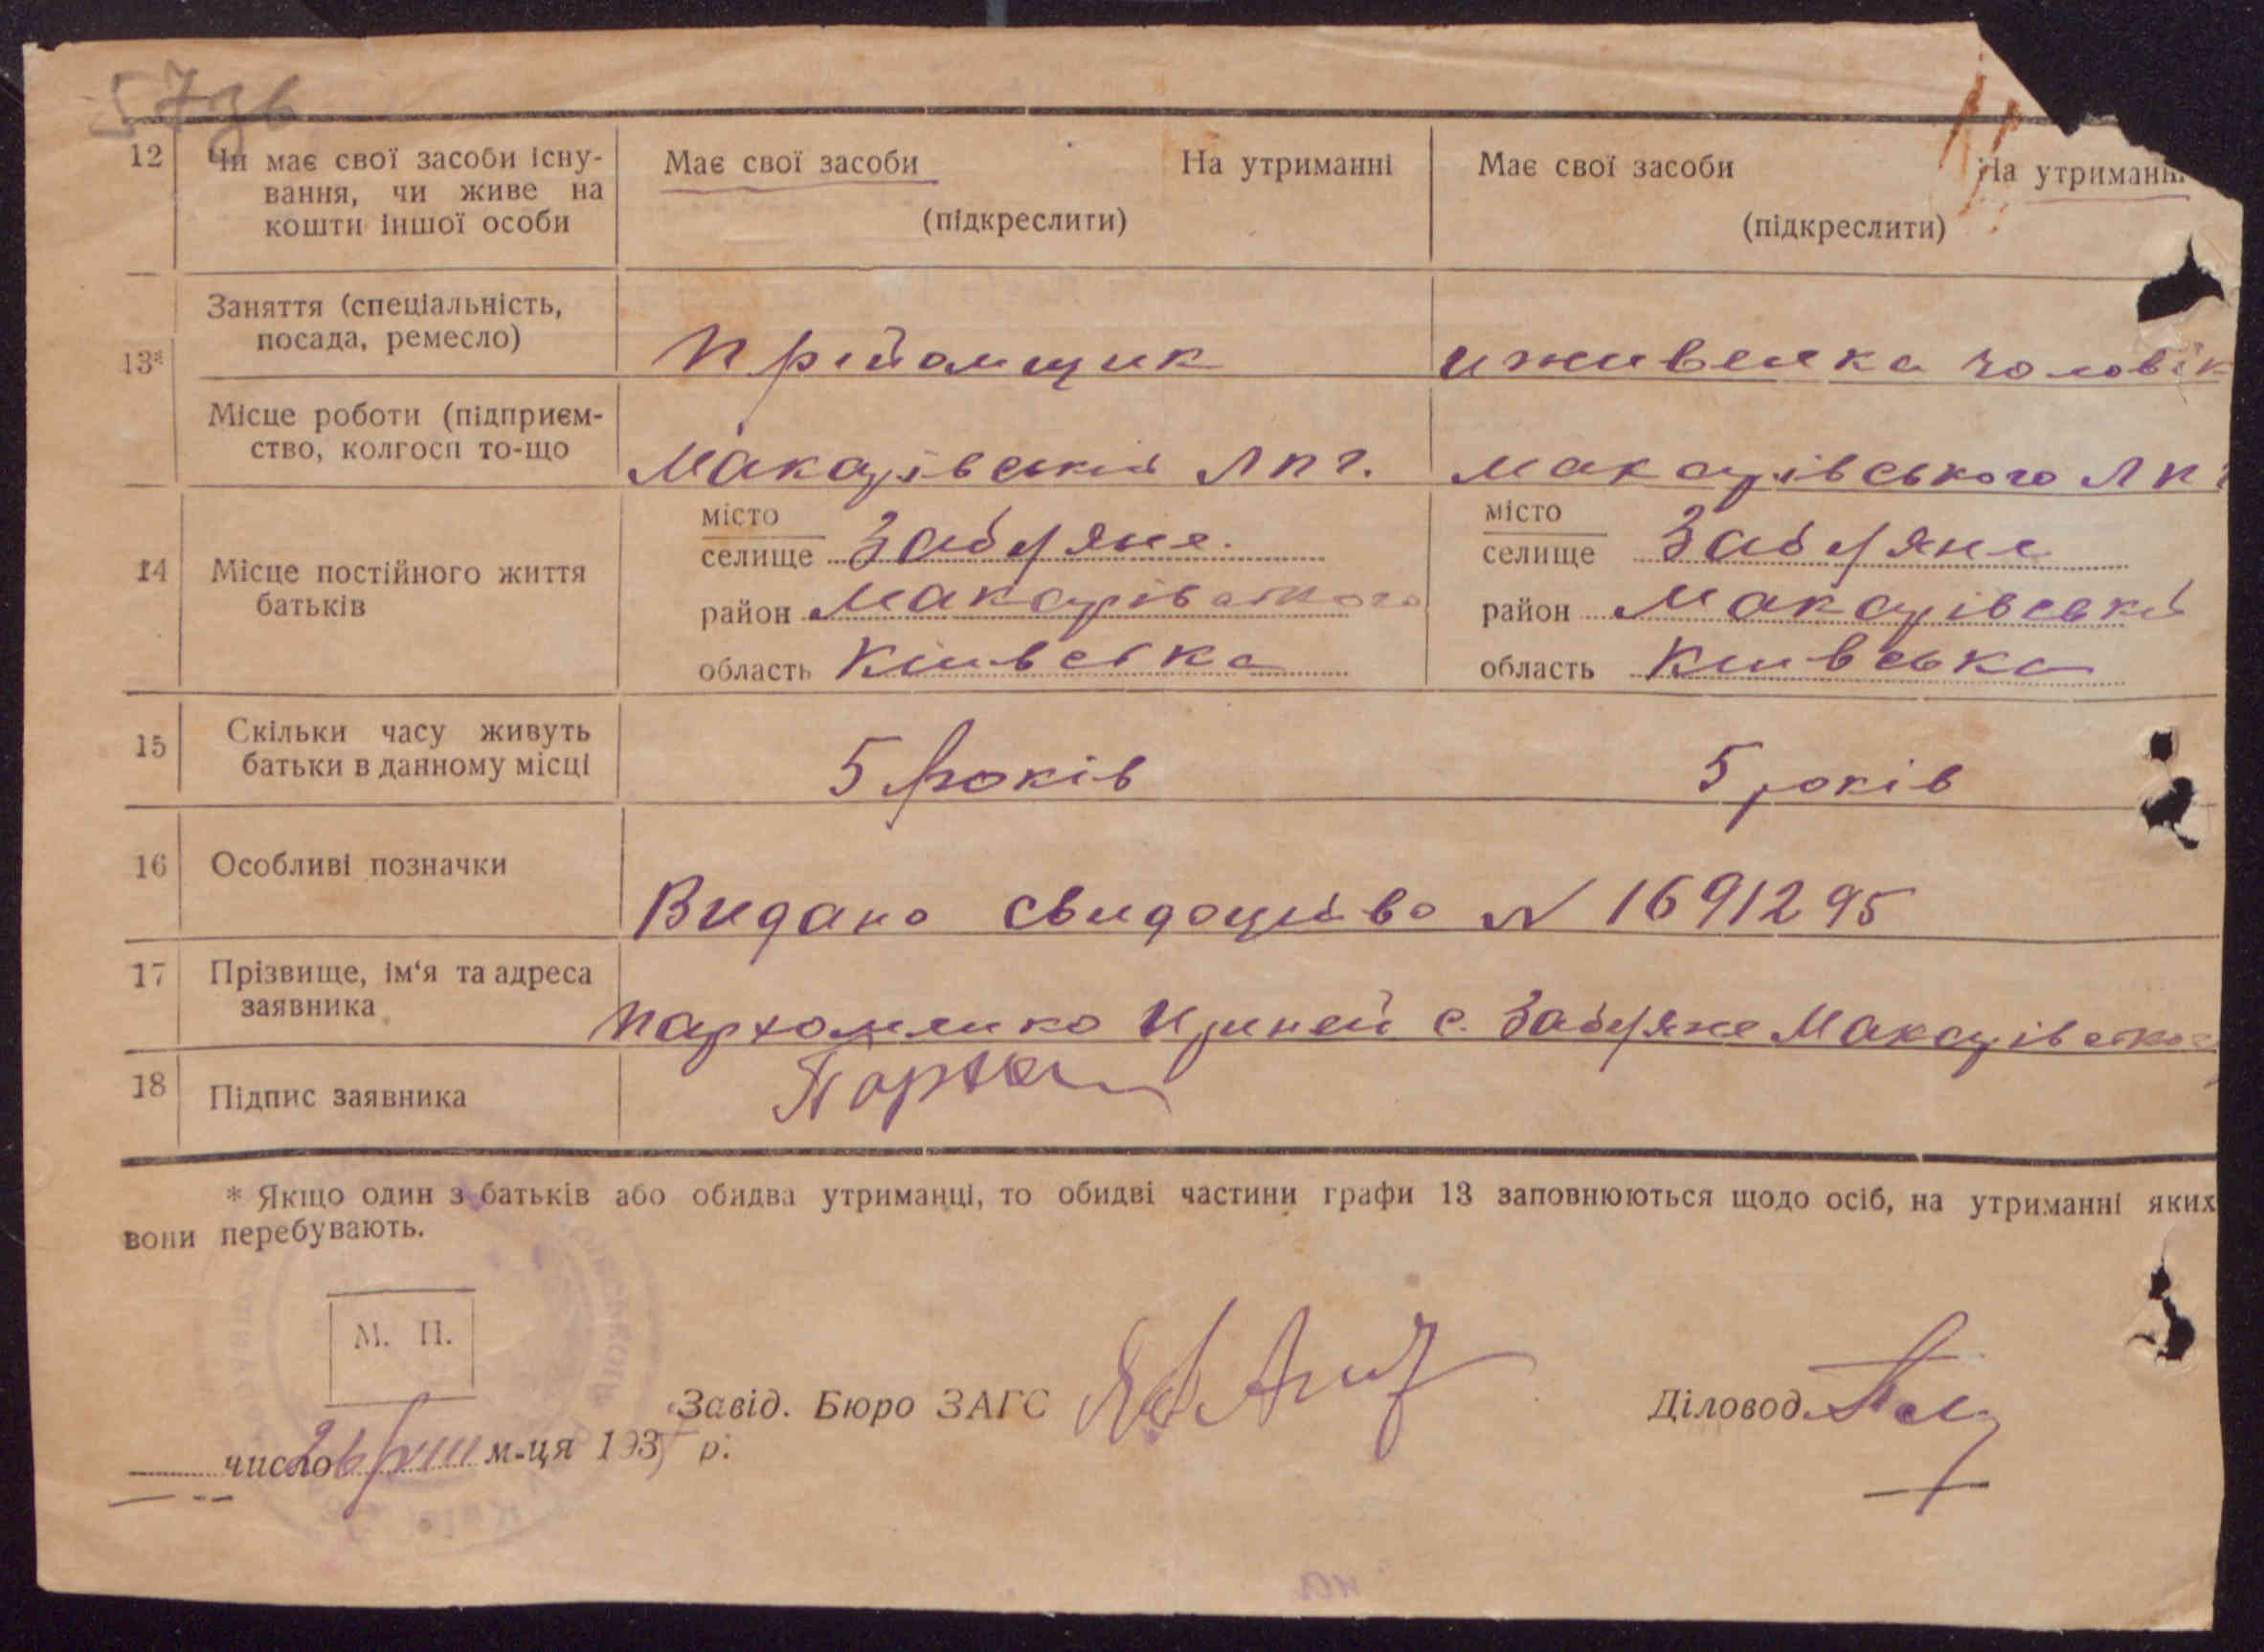 57зв
12 Чи має свої засоби існу-
вання, чи живе на
кошти іншої особи
Має свої засоби На утриманні
(підкреслити)
Має свої засоби На утриманні
(підкреслити)
13*
Заняття (спеціальність,
посада, ремесло)
прийомщик
иживенка чоловік
Місце роботи (підприєм-
ство, колгосп то-що
Макарівський ЛПГ.
Макарівського ЛПГ
14 Місце постійного життя
батьків
місто
селище Забуяне.
район Макарівського
область Київська
місто
селище Забуяне
район Макарівський
область Київська
15 Скільки часу живуть
батьки в данному місці
5 років
5 років
16 Особливі позначки
Видано свидоцтво N 1691295
17 Прізвище, ім'я та адреса
заявника
Пархоменко Ириней с. Забуяне Макарівського
18 Підпис заявника
* Якщо один з батьків або обидва утриманці, то обидві частини графи 13 заповнюються щодо осіб, на утриманні яких
вони перебувають.
М. П.
Завід. Бюро ЗАГС
Діловод
число 26/VIII м-ця 193 р.